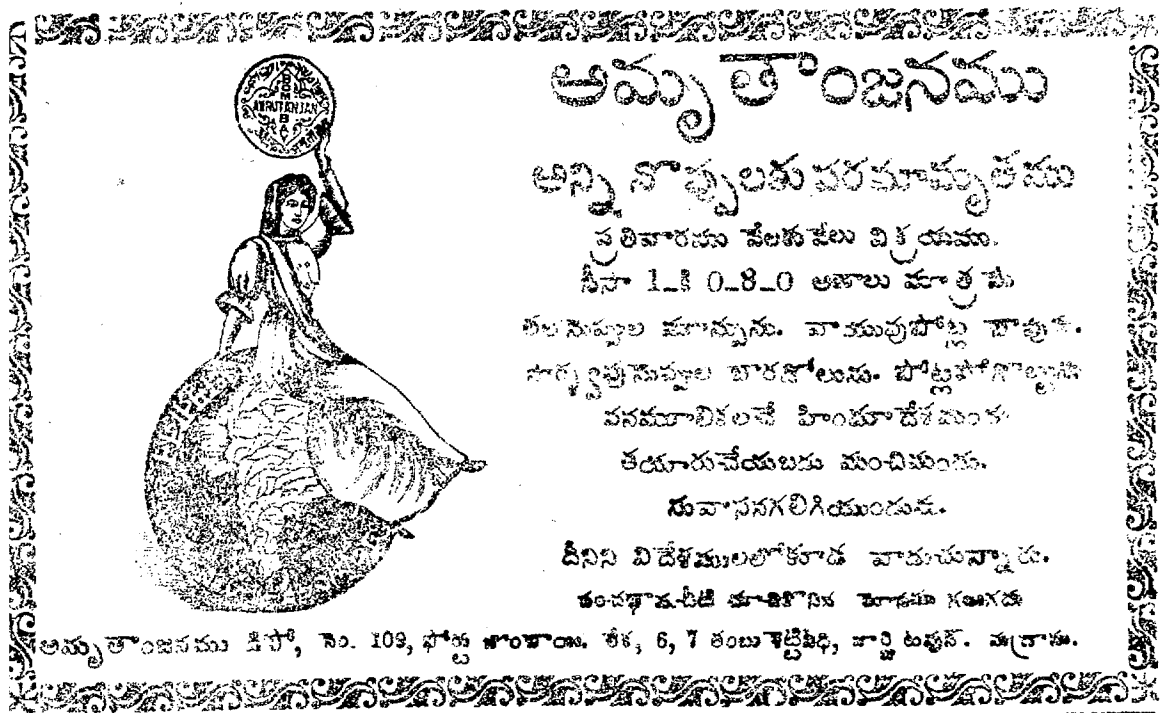 BOMBAY
AMRUTANJAN
అమృతాంజనము
అన్ని నొప్పులకు పరమామృతము
ప్రతివారము వేలకువేలు విక్రయము.
సీసా 1-కి 0-8-0 అణాలు మాత్రమే
తలనొప్పుల మాన్పును. వాయువుపోట్ల
వనమూలికలచే హిందూదేశమందు
తయారుచేయబడు మంచిమందు.
సువాసనగలిగియుండును.
దీనిని విదేశములలోకూడ వాడుచున్నారు.
అమృతాంజనము డిపో, నెం. 109, ఫోర్టు బొంబాయి. 6, 7 తంబుశెట్టివీధి, జార్జి టవున్. మద్రాసు.